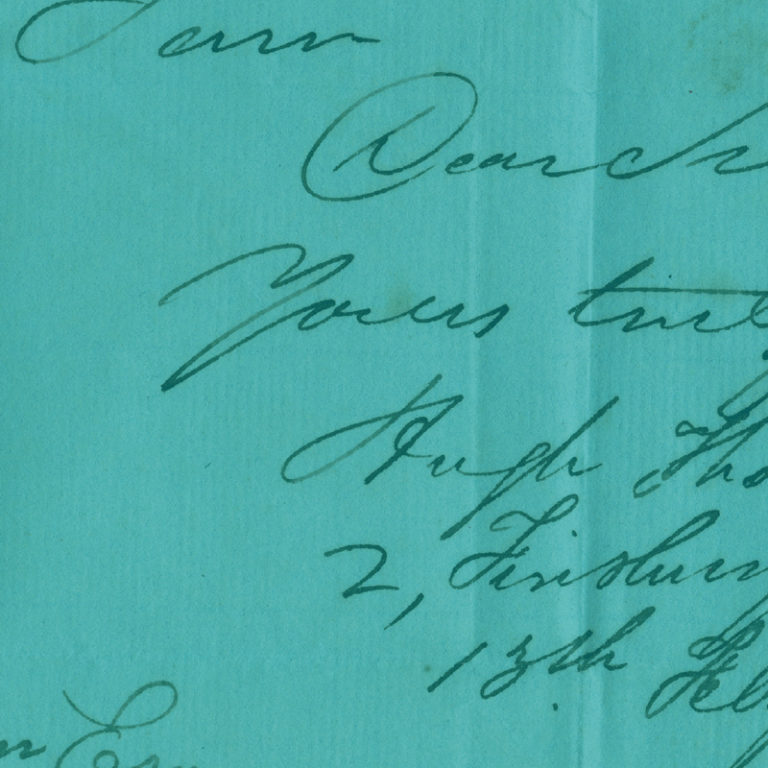 I am
Dear Sir
Yours truly
Hugh Tho
2, Finsbury
13th Feb
Esq